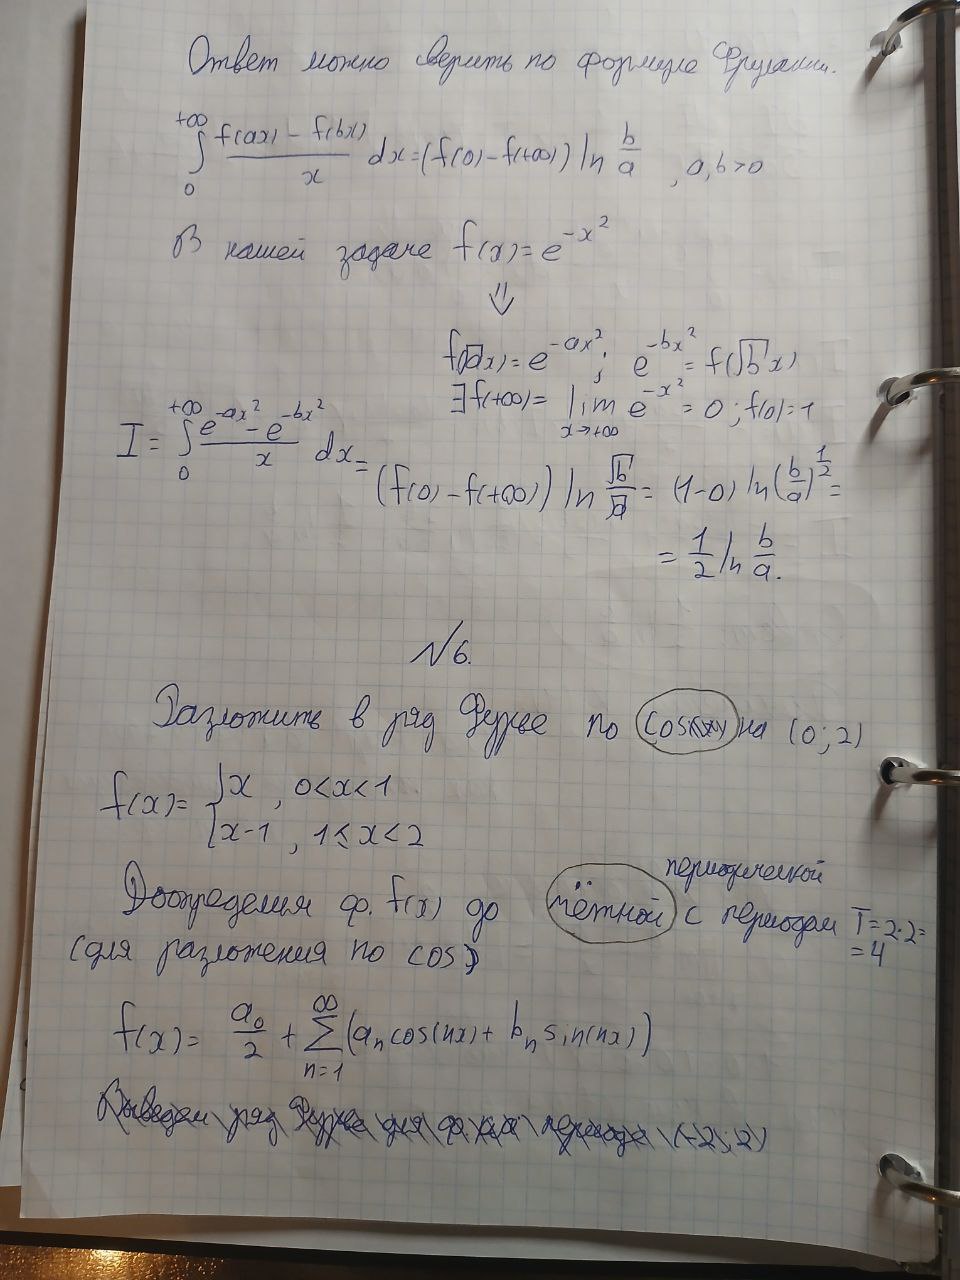 Ответ можно сверить по формуле Фруллани.
+∞∫0 (f(ax) - f(bx))/x dx = (f(0) - f(+∞)) ln b/a , a,b>0
В нашей задаче f(x) = e^{-x²}
⇓
f(√a x) = e^{-ax²}; e^{-bx²} = f(√b x)
∃ f(+∞) = lim x→+∞ e^{-x²} = 0; f(0) = 1
I = +∞∫0 (e^{-ax²} - e^{-bx²})/x dx =
(f(0) - f(+∞)) ln √b/√a = (1-0) ln (b/a)^{1/2} =
= 1/2 ln b/a.
№6.
Разложить в ряд Фурье по cos на (0; 2)
f(x) = { x , 0<x<1
x-1 , 1≤x<2
Доопределим ф. f(x) до чётной периодической с периодом T=2·2=
=4
(для разложения по cos)
f(x) = a₀/2 + ∞∑n=1 (aₙ cos(nx) + bₙ sin(nx))
Выведем ряд Фурье для ф. на периоде (-2; 2)